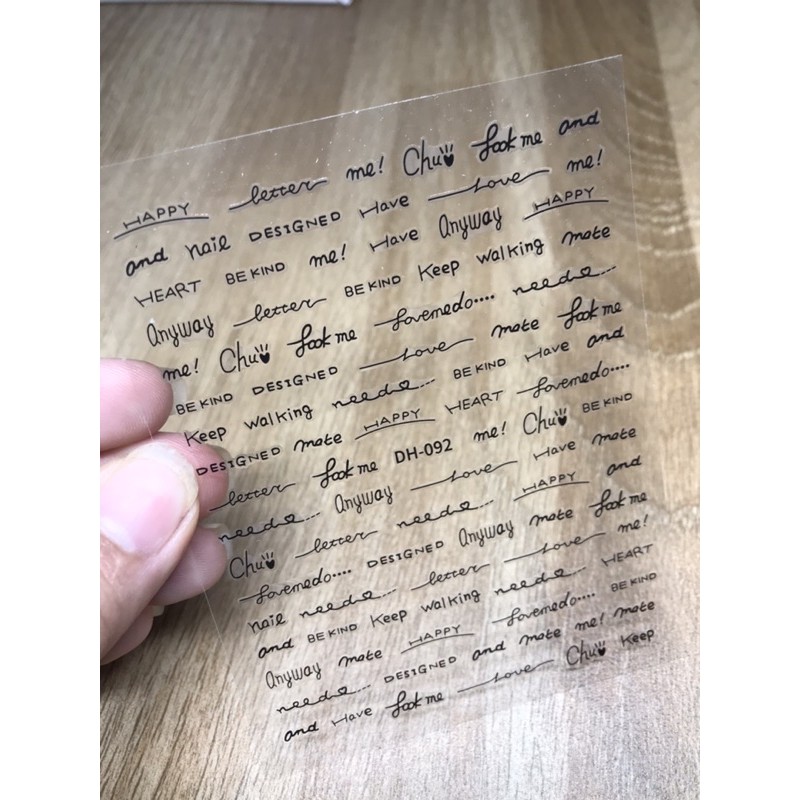 HAPPY letter me! Chu look me and
and nail DESIGNED Have Love me!
HEART BE KIND me! Have Anyway HAPPY
Anyway letter BE KIND Keep walking mate
me! Chu look me Lovemedo.... need...
BE KIND DESIGNED Love mate look me
Keep walking need... BE KIND Have and
DESIGNED mate HAPPY HEART Lovemedo....
letter look me DH-092 me! Chu BE KIND
need... Anyway Love Have mate
Chu letter need... HAPPY and
Lovemedo.... DESIGNED Anyway mate look me
nail need... letter Love me!
and BE KIND Keep walking need... HEART
Anyway mate HAPPY Lovemedo.... BE KIND
need... DESIGNED and mate me! mate
and Have look me Love Chu Keep